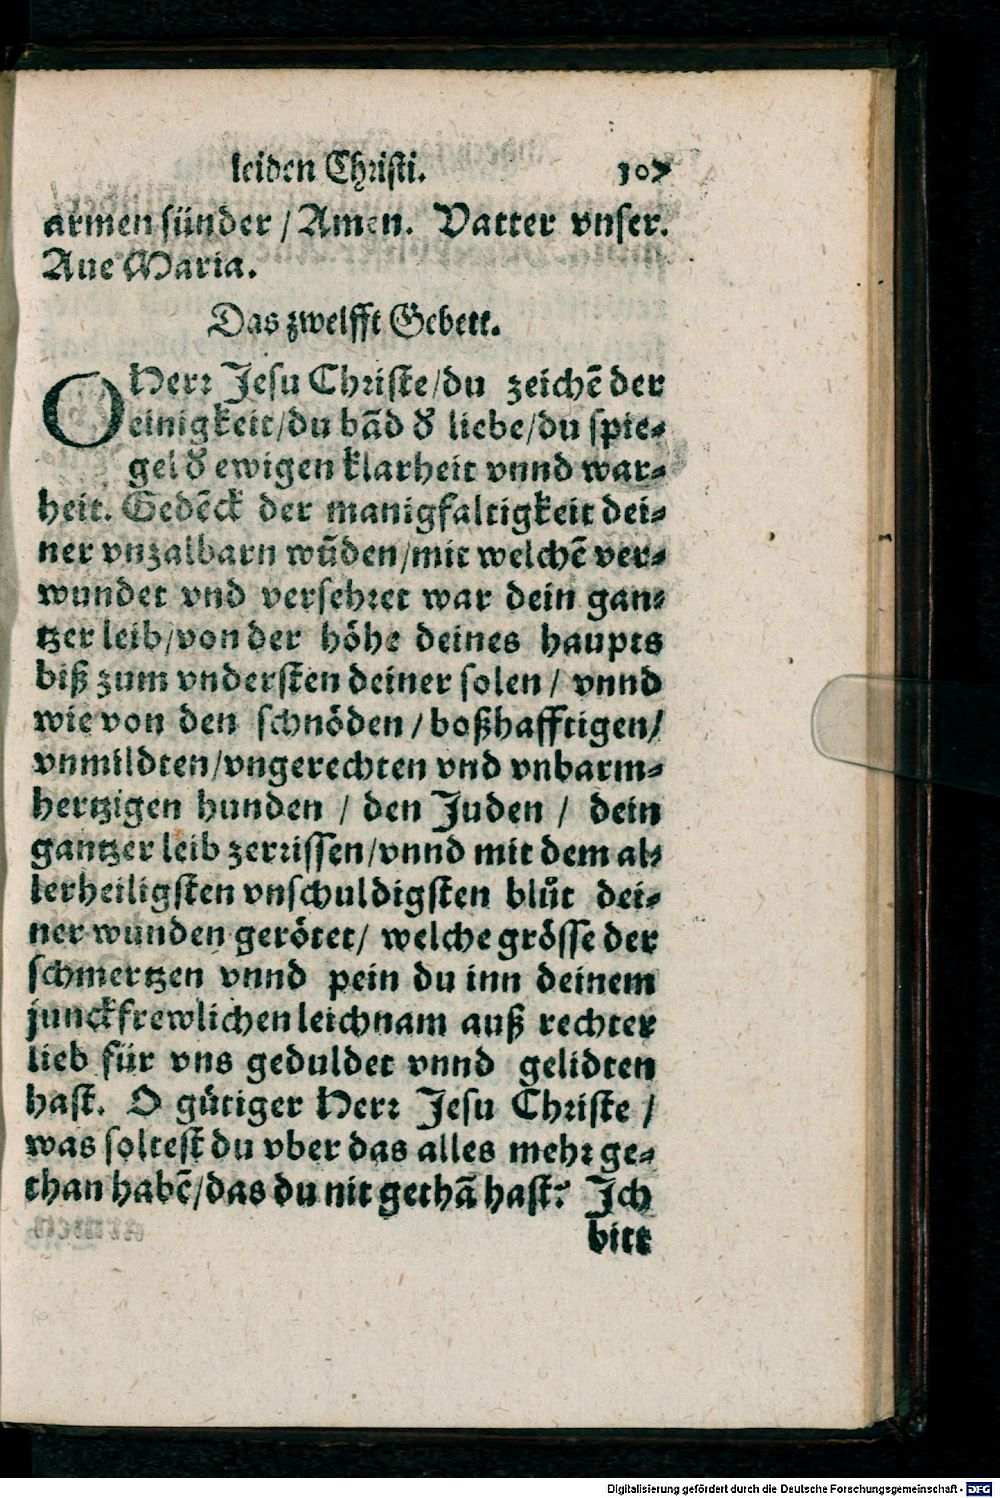 leiden Christi. 107
armen sünder / Amen. Vatter vnser.
Aue Maria.
Das zwelfft Gebett.
O Herr Jesu Christe/du zeichẽ der
einigkeit/du bãd d᷑ liebe/du spie⸗
gel d᷑ ewigen klarheit vnnd war⸗
heit. Gedẽck der manigfaltigkeit dei⸗
ner vnzalbarn wũden/mit welchẽ ver⸗
wundet vnd versehret war dein gan⸗
tzer leib/von der höhe deines haupts
biß zum vndersten deiner solen / vnnd
wie von den schnöden / boßhafftigen/
vnmildten/vngerechten vnd vnbarm⸗
hertzigen hunden / den Juden / dein
gantzer leib zerrissen/vnnd mit dem al⸗
lerheiligsten vnschuldigsten blůt dei⸗
ner wunden gerötet/ welche grösse der
schmertzen vnnd pein du inn deinem
junckfrewlichen leichnam auß rechter
lieb für vns geduldet vnnd gelidten
hast. O gütiger Herr Jesu Christe /
was soltest du vber das alles mehr ge⸗
than habẽ/das du nit gethã hast? Ich
bitt
Digitalisierung gefördert durch die Deutsche Forschungsgemeinschaft - DFG